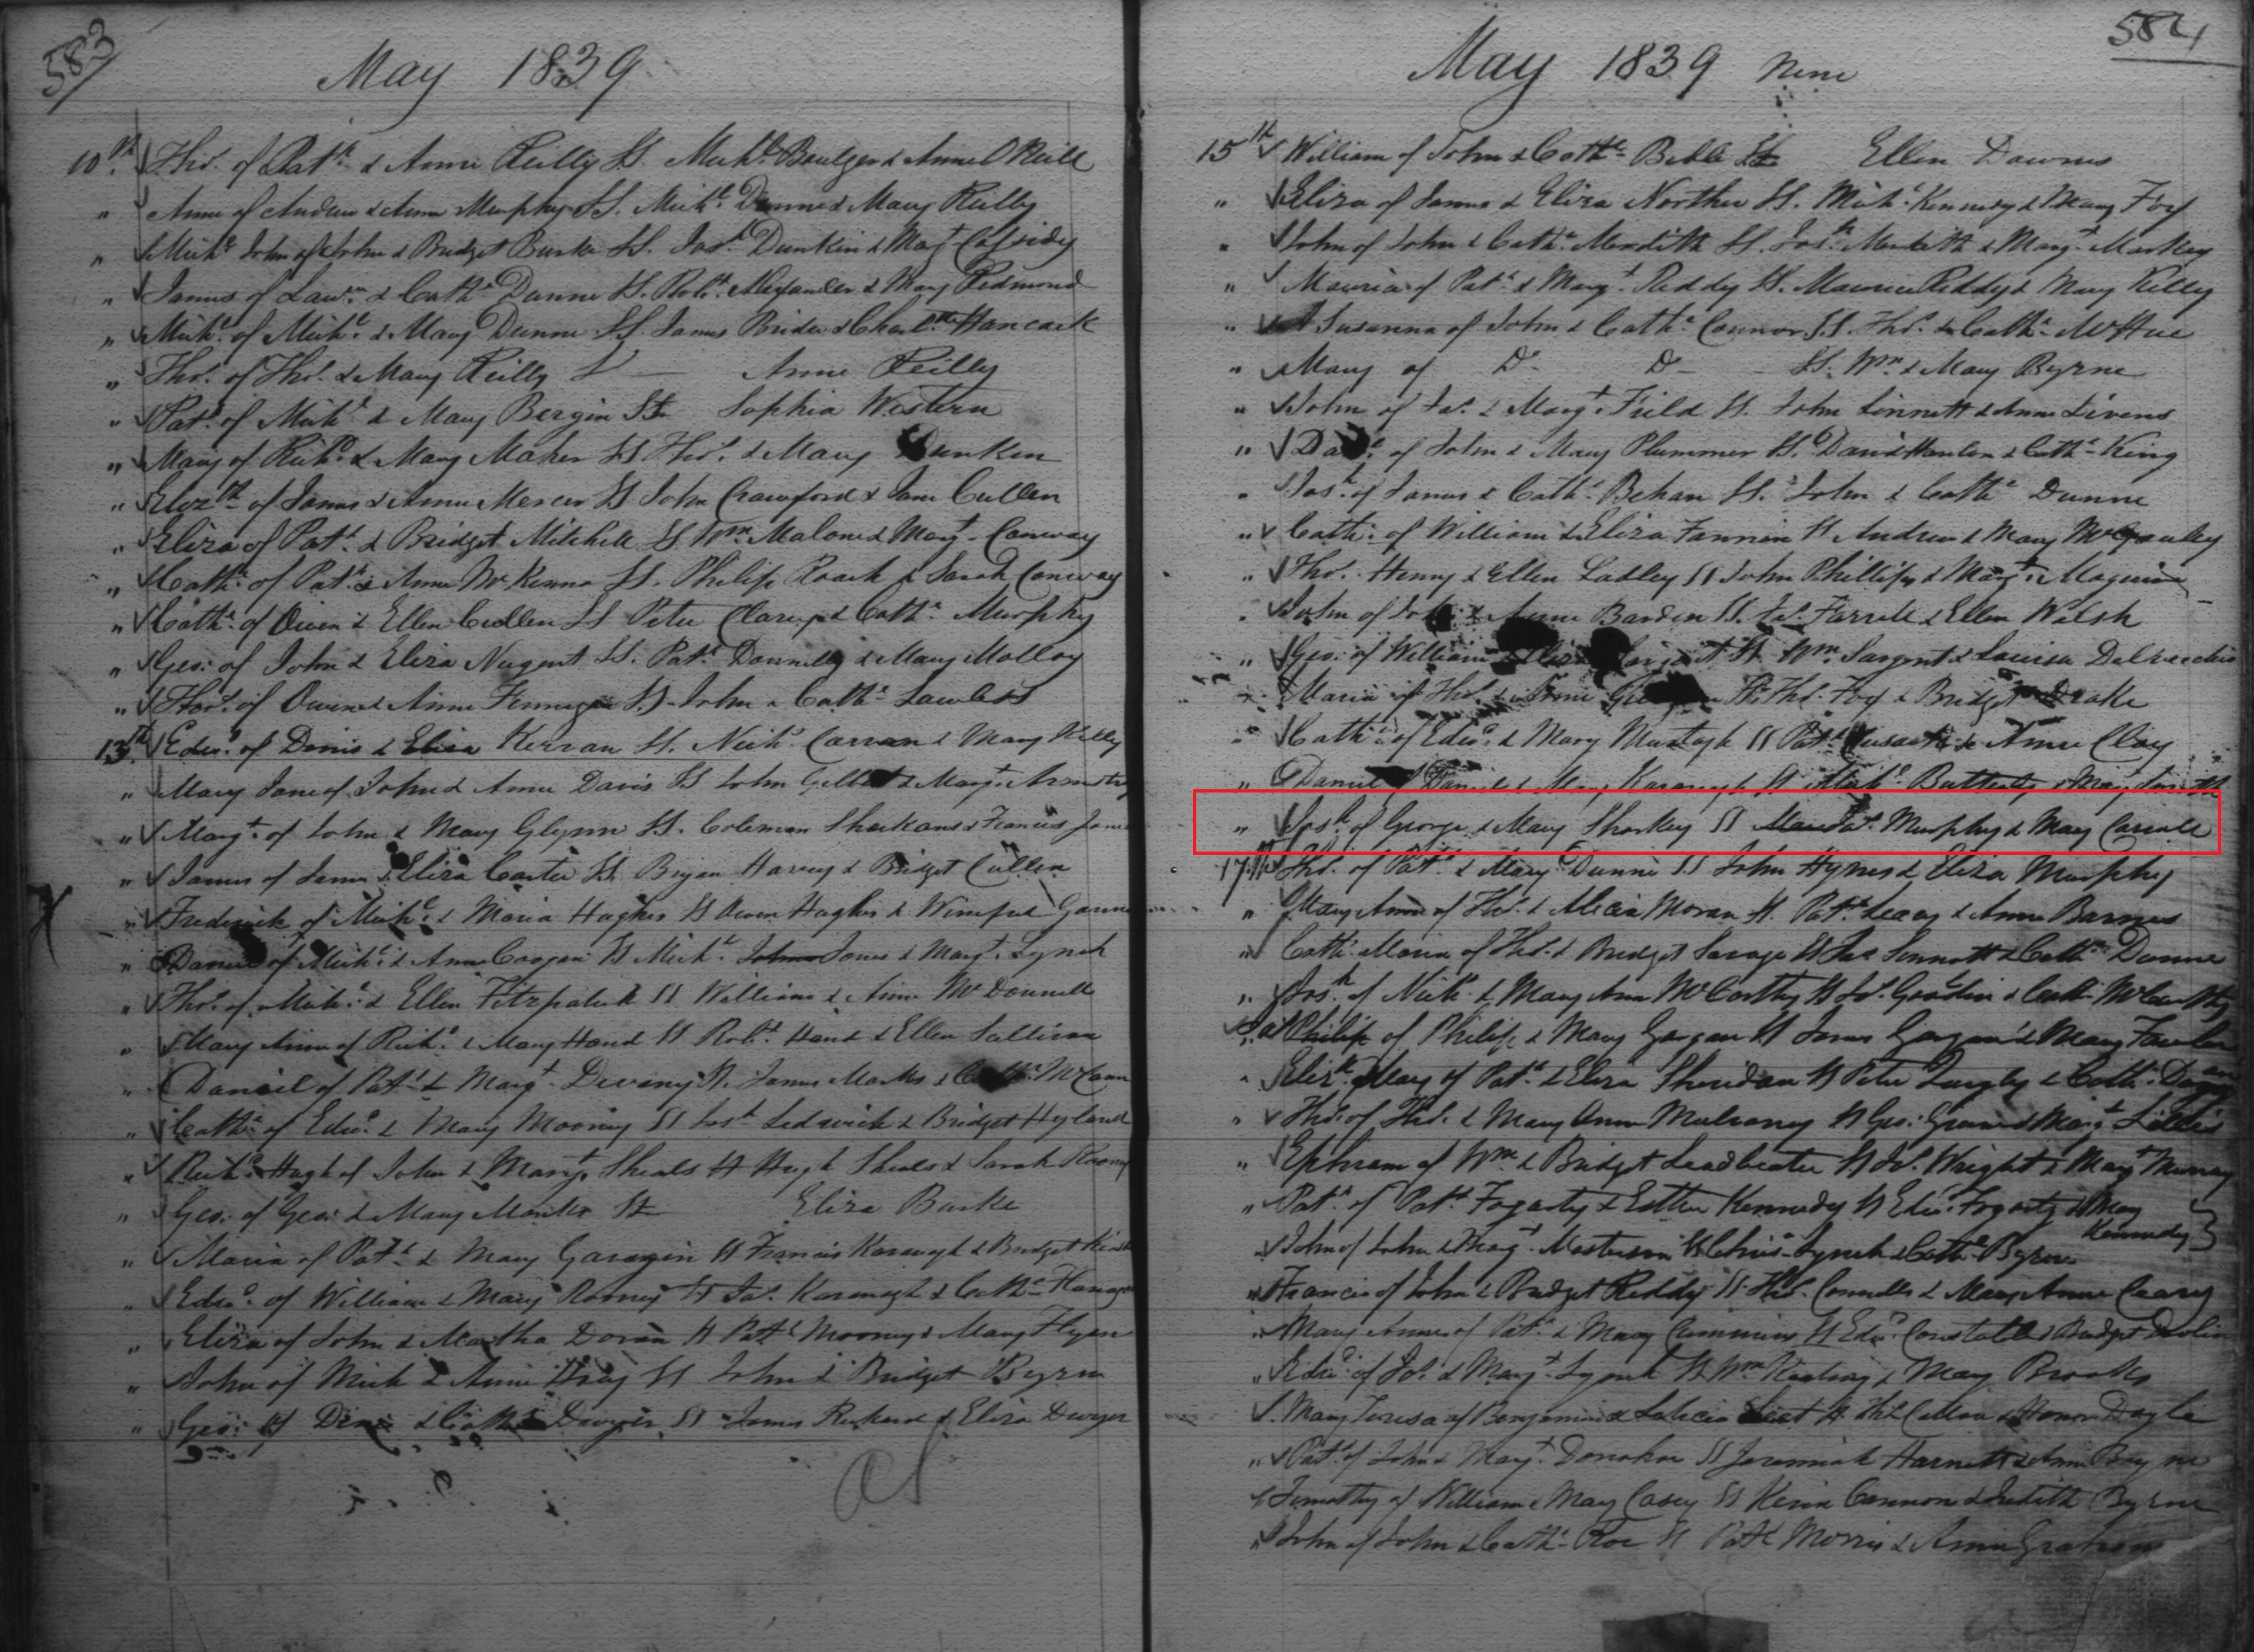 583
May 1839
10th Thos. of Patk. & Anne Reilly SS. Michl. Boulger & Anne O'Neill
" Anne of Andrew & Anne Murphy SS. Michl. Dunne & Mary Reilly
" Michl. John of John & Bridget Burke SS. Josh. Dunkin & Margt. Cassidy
" James of Lawce. & Cathe. Dunne SS. Robt. Alexander & Mary Redmond
" Michl. of Michl. & Mary Dunne SS James Brider & Hancock
" Thos. of Thos. & Mary Reilly S — Anne Reilly
" Patk. of Michl. & Mary Bergin Sr. Sophia Western
" Mary of Richd. & Mary Maher SS Thos. & Mary Dunken
" Elizth. of James & Anne Mercer SS John Crawford & Jane Cullen
" Eliza of Patk. & Bridget Mitchell SS Wm. Malone & Margt. Conway
" Cathe. of Patk. & Anne McKenna SS. Philip Roach & Sarah Conway
" Cathe. of Owen & Ellen Cullen SS Peter Clarey & Cathe. Murphy
" Geo: of John & Eliza Nugent SS. Patk. Donnelly & Mary Molloy
" Thos. of Owen & Anne Finnegan SS. John & Cathe. Lawless
13th Edwd. of Denis & Eliza Kerran SS. Nichs. Carran & Mary Kelly
" Mary Jane of John & Anne Davis SS John Gilbert & Margt.
" Margt. of John & Mary Glynn SS. Coleman & Francis
" James of James & Eliza Carter SS. Bryan Harvey & Bridget Cullen
" Frederick of Michl. & Maria Hughes SS Owen Hughes & Winifred
" Daniel of Michl. & Anne Coogan SS Michl. Jones & Margt. Lynch
" Thos. of Michl. & Ellen Fitzpatrick SS William & Anne McDonnell
" Mary Anne of Richd. & Mary Hand SS Robt. Hand & Ellen Sullivan
" Daniel of Patk. & Margt. Devany SS. James Marks & Cathe. McCann
" Cathe. of Edwd. & Mary Mooney SS Josh. Ledwich & Bridget Hyland
" Richd. Hugh of John & Margt. Sheals SS Hugh Sheals & Sarah
" Geo. of Geo: & Mary Sr. Eliza Burke
" Maria of Patk. & Mary SS Francis Kavanagh & Bridget
" Edwd. of William & Mary Rooney SS Jas. Kavanagh & Cathe.
" Eliza of John & Martha Doran SS Patk. Mooney & Mary Flynn
" John of Mick & Anne SS John & Bridget Byrne
" Geo: of Denis & Cathe. Dwyer SS James & Eliza Dwyer
584
May 1839 Nine
15th William of John & Cathe. Bible Sr. Ellen Downes
" Eliza of James & Eliza Norther SS. Michl. Kennedy & Mary Foy
" John of John & Cathe. Meredith SS. Josh. Meredith & Margt. Markey
" Mauria of Patk. & Margt. Reddy SS. Maurice Reddy & Mary Kelly
" Susanna of John & Cathe. Connor SS. Thos. & Cathe. McHue
" Mary of Do. Do. — SS. Wm. & Mary Byrne
" John of Jas. & Margt. Field SS. John Sinnott & Anne
" of John & Mary Plummer SS. David Hanlon & Cathe. King
" Josh. of James & Cathe. Behan SS. John & Cathe. Dunne
" Cathe. of William & Eliza Fannin SS Andrew & Mary McGauley
" Thos. Henry & Ellen Ladley SS John Phillips & Margt. Maguire
" John of & Anne Barden SS. Jas. Farrell & Ellen Walsh
" Geo: of William & Eliza SS Wm. Sargent & Louisa Delvecchio
" Maria of Thos. & Anne SS. Thos. Foy & Bridget Drake
" Cathe. of Edwd. & Mary Murtagh SS Patk. Cusack & Anne Clay
" Daniel of Daniel & Mary Kavanagh SS Butterly & Mary
" Josh. of George & Mary Sharkey SS Jas. Murphy & Mary Carroll
17th Thos. of Patk. & Mary Dunne SS John Hynes & Eliza Murphy
" Mary Anne of Thos. & Alicia Moran SS. Patk. Leary & Anne Barnes
" Cathe. Maria of Thos. & Bridget Savage SS Jas Sinnott & Cathe. Dunne
" Josh. of Nichs. & Mary Ann McCarthy SS Jas. & Cathe. McCarthy
" Philip of Philip & Mary Gargan SS James Gargan & Mary Fowler
" Elizth. Mary of Patk. & Eliza Sheridan SS Peter Quigley & Cathe.
" Thos. of Thos. & Mary Anne Mulvaney SS Geo: & Margt.
" Ephraim of Wm. & Bridget Leadbeater SS Jos. Wright & Margt. Murray
" Patk. of Patk. Fogarty & Esther Kennedy SS Edwd. Fogarty & Mary Kennedy
" John of John & Margt. Masterson SS Chris. Lynch & Cathe. Byrne
" Francis of John & Bridget Reddy SS Thos. Connolly & Mary Anne Carey
" Mary Anne of Patk. & Mary Cummins SS Edwd. & Bridget Devlin
" Edwd. of Jos. & Margt. Lynch SS Wm. Keating & Mary Brooks
" Mary Teresa of Benjamin & SS Callan & Honor Doyle
" Patk. of John & Margt. Donohoe SS Jeremiah Harnett & Anne Byrne
" Timothy of William & Mary Casey SS Kevin Cannon & Judith Byrne
" John of John & Cathe. Roe SS Patk Morris & Anne Graham